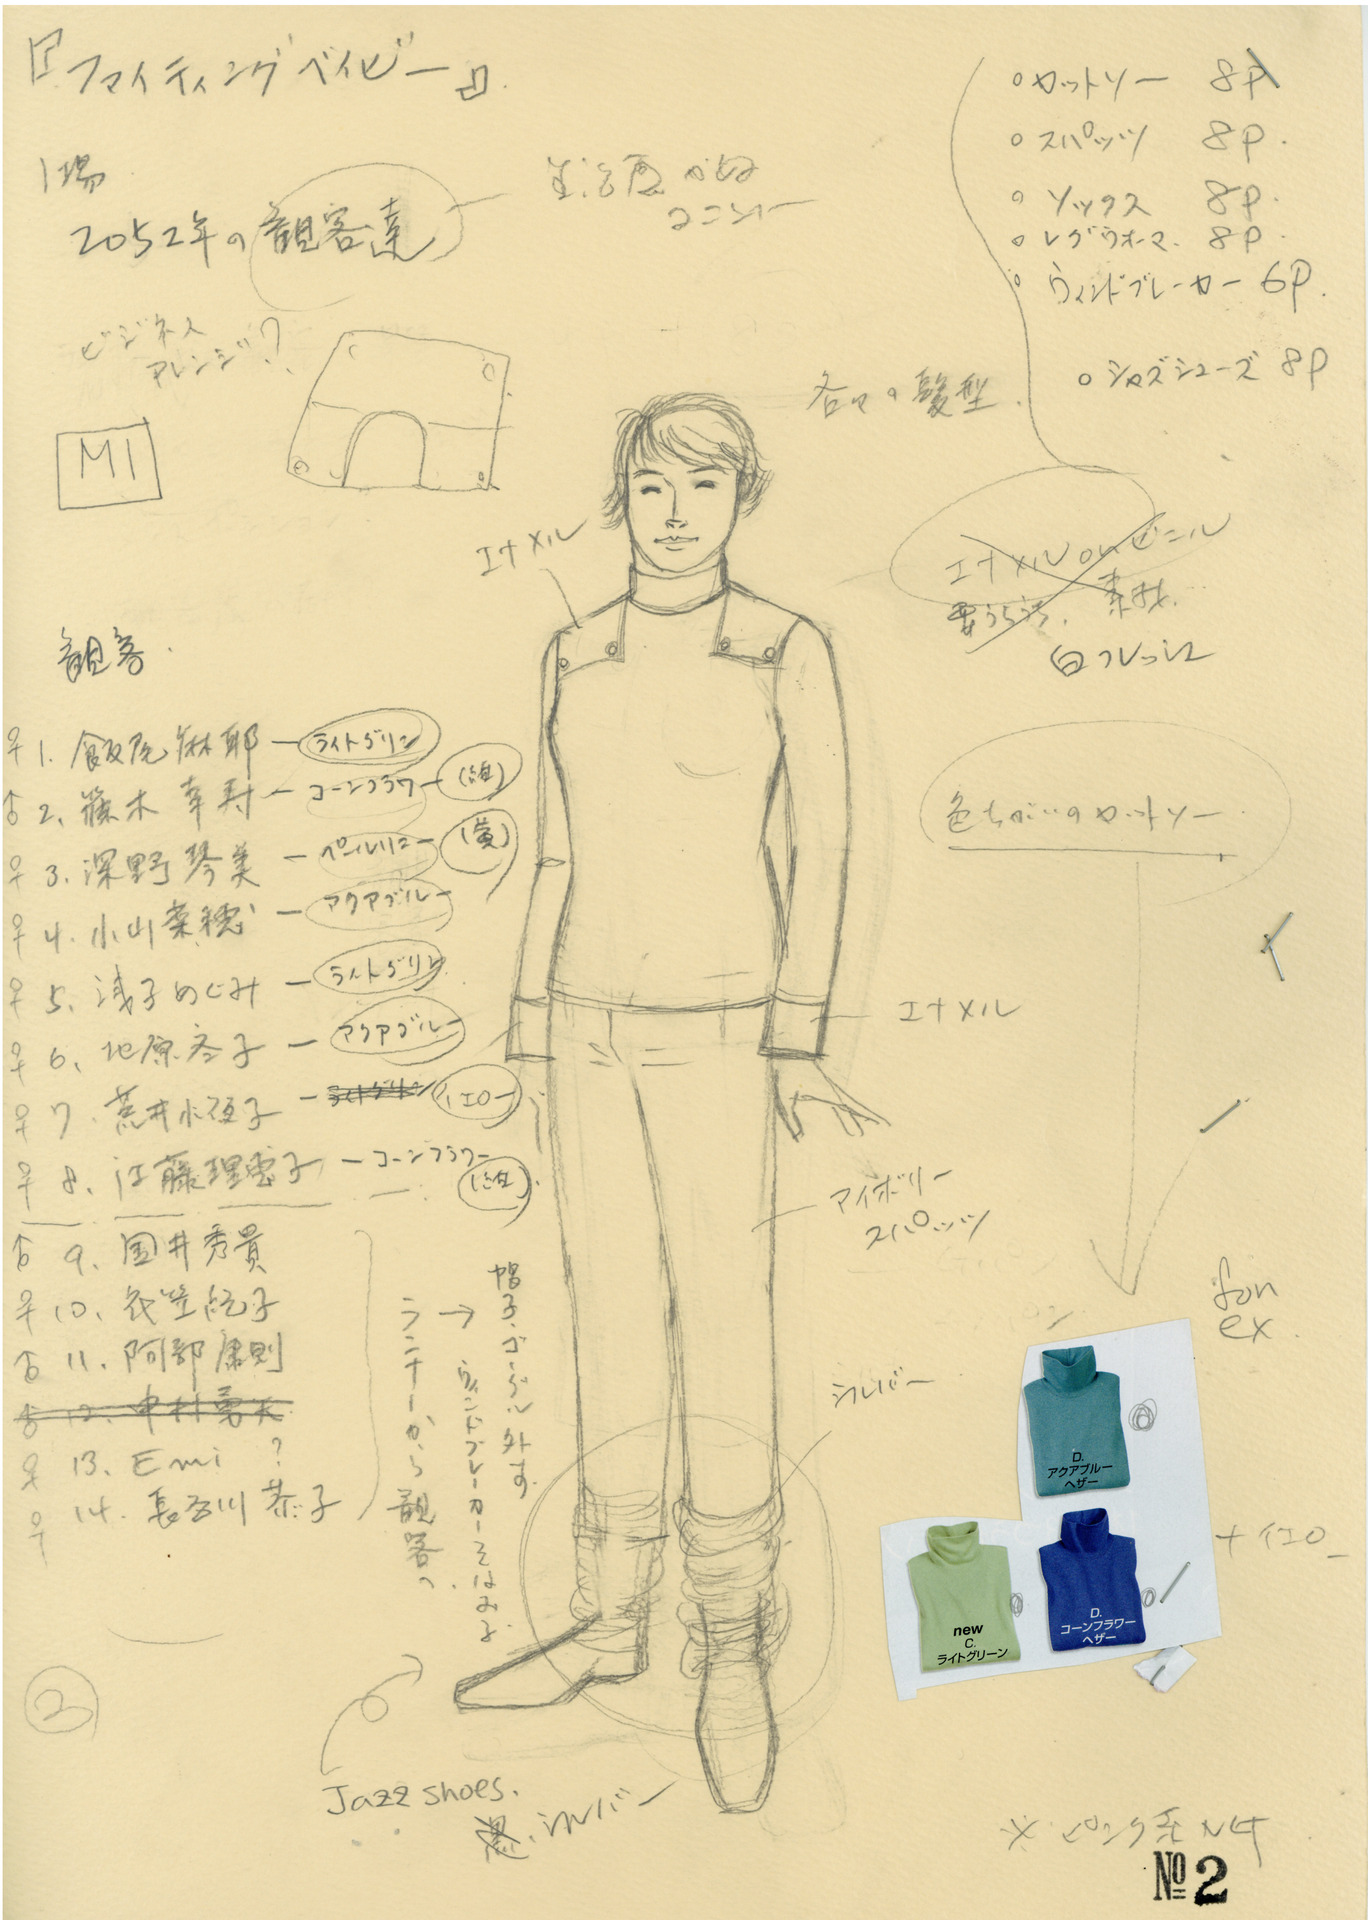 『ファイティングベイビー』
1場
2052年の観客達
生活感がある
ユニフォー
ビジネス
アレンジ?
M1
○カットソー 8P
○スパッツ 8P.
○ソックス 8P.
○レグウォーマ. 8P.
○ウィンドブレーカー 6P.
○ジャズシューズ 8P
各々の髪型.
エナメル
エナメル or ビニール
素材
白フレッシュ
色ちがいのカットソー
観客.
♀ 1. 飯尾麻耶 ー ライトグリン
♂ 2. 藤木幸寿 ー コーンフラワー (紺)
♀ 3. 深野琴美 ー (黄)
♀ 4. 小山菜穂 ー アクアブルー
♀ 5. 浅子めぐみ ー ライトグリン
♀ 6. 地原杏子 ー アクアブルー
♀ 7. 荒井 ー ライトグリン イエロー
♀ 8. 江藤理恵子 ー コーンフラワー (紺)
♂ 9. 国井秀貴
♀ 10. 衣笠純子
♂ 11. 阿部康則
♂ 12. 中村勇矢
♀ 13. Emi ?
♀ 14. 長谷川恭子
エナメル
アイボリー
スパッツ
帽子、ゴーグル外す.
→ ウィンドブレーカーをはおる.
ランナーから観客へ
シルバー
for
ex.
D.
アクアブルー
ヘザー
new
C.
ライトグリーン
D.
コーンフラワー
ヘザー
+イエロー
②
Jazz shoes.
シルバー
※ ピンク系 NG
№2